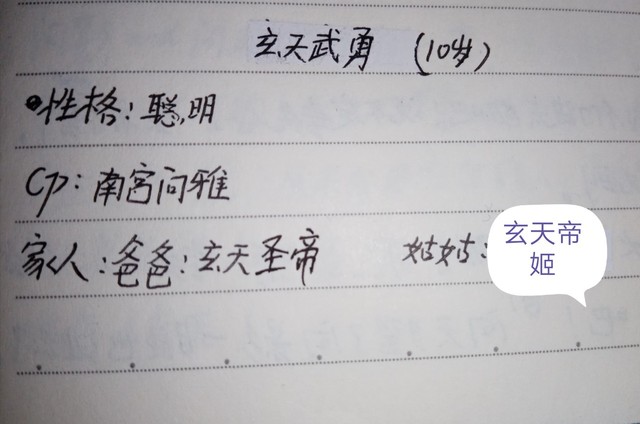 玄天武勇 (10岁)
性格:聪明
CP:南宫问雅
家人:爸爸:玄天圣帝 姑姑:玄天帝姬